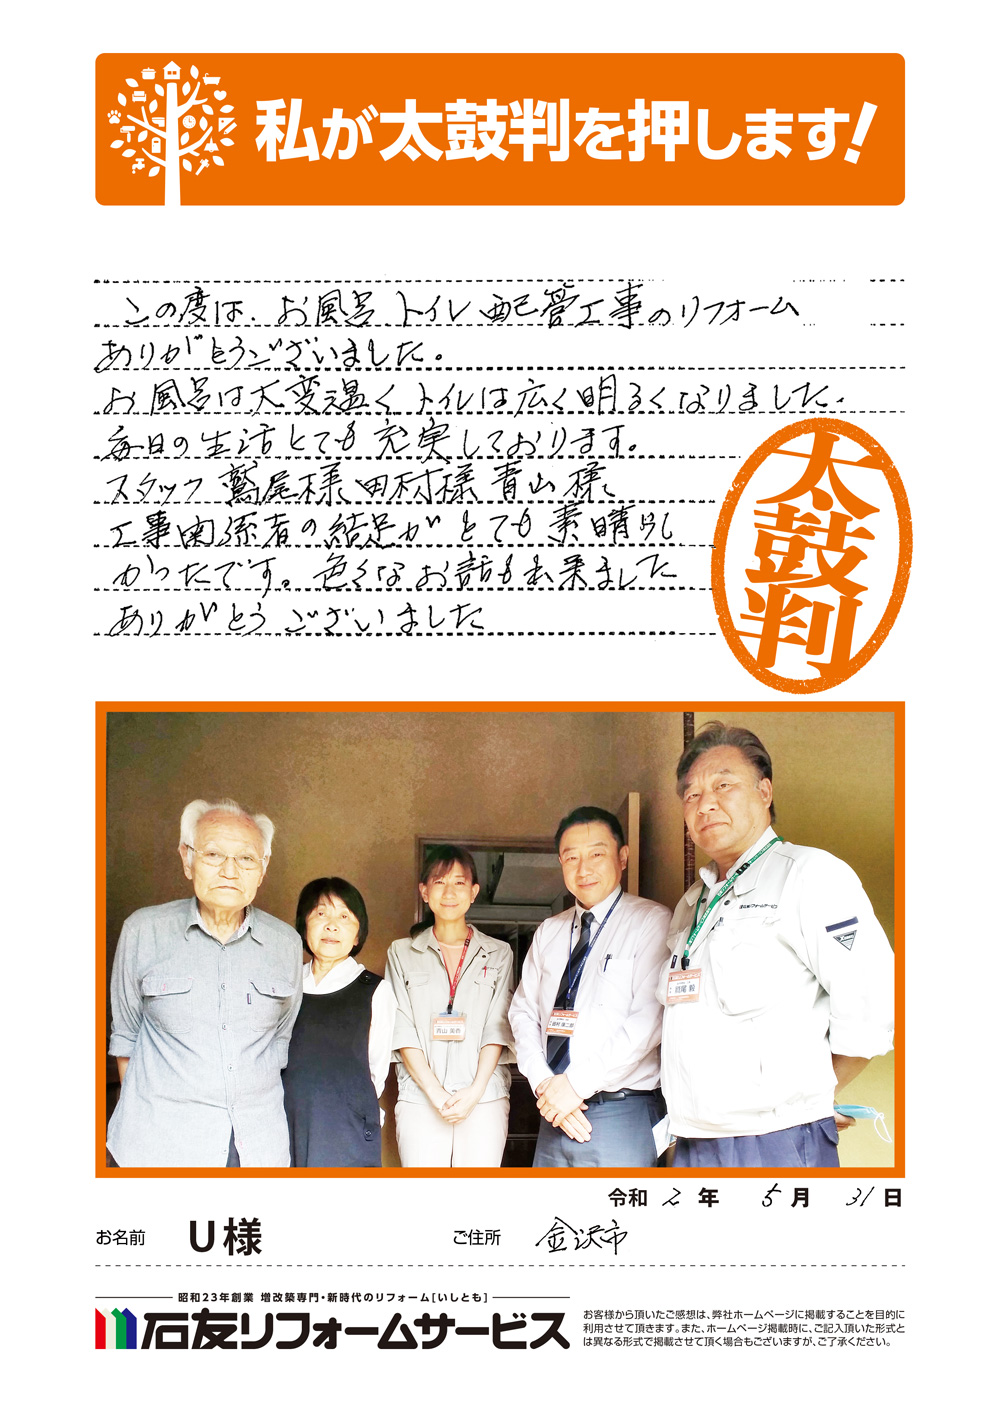 私が太鼓判を押します!
この度は、お風呂トイレ配管工事のリフォーム
ありがとうございました。
お風呂は大変温くトイレは広く明るくなりました。
毎日の生活とても充実しております。
スタッフ 鷲尾様 田村様 青山様
工事関係者の結足がとても素晴らし
かったです。色々なお話も出来ました
ありがとうございました
太鼓判
青山
石友リフォームサービス
令和 2 年 5 月 31 日
お名前 U様 ご住所 金沢市
昭和23年創業 増改築専門・新時代のリフォーム[いしとも]
石友リフォームサービス
お客様から頂いたご感想は、弊社ホームページに掲載することを目的に
利用させて頂きます。また、ホームページ掲載時に、ご記入頂いた形式と
は異なる形式で掲載させて頂く場合もございますが、ご了承ください。